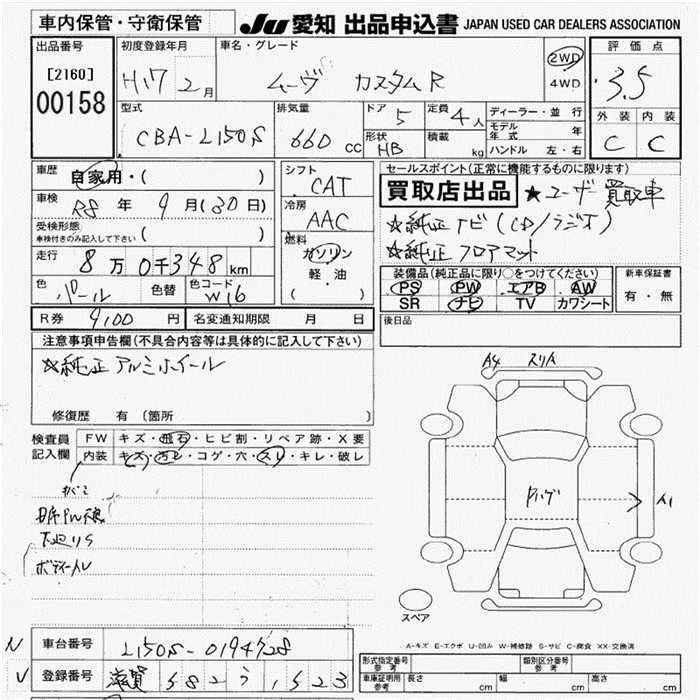 車内保管・守衛保管
JU 愛知 出品申込書 JAPAN USED CAR DEALERS ASSOCIATION
出品番号
[2160]
00158
初度登録年月
H17 2月
車名・グレード
ムーヴ カスタムR
2WD
4WD
評価点
3.5
外装 内装
C C
型式
CBA-L150S
排気量
660 cc
ドア
5
定員
4人
形状
HB
積載
kg
ディーラー・並行
モデル年式 年
ハンドル 左・右
車歴
自家用・( )
車検
R8年 9月(30日)
受検形態
車検付きのみ記入して下さい ( )
走行
8万0千348km
色
パール
色替
色コード
W16
シフト
CAT
冷房
AAC
燃料
ガソリン
軽・油
( )
セールスポイント(正常に機能するものに限ります)
買取店出品 ★ユーザー買取車
☆純正ナビ(CD/ラジオ)
☆純正フロアマット
装備品(純正品に限り○をつけてください)
PS PW エアB AW
SR ナビ TV カワシート
新車保証書
有・無
R券 9,100 円 名変通知期限 月 日
後日品
注意事項申告欄(不具合内容等は具体的に記入して下さい)
☆純正アルミホイール
修復歴 有 〔箇所 〕
検査員記入欄
FW キズ・飛石・ヒビ割・リペア跡・X要
内装 キズ・汚レ・コゲ・穴・スレ・キレ・破レ
下廻りS
A4 スリA
A1
スペア
A-キズ E-エクボ U-凹み W-補修跡 S-サビ C-腐食 XX-交換済
車台番号 L150S-0194728
登録番号 滋賀 582 う 1523
形式指定番号 参考
類別区分番号 参考
車庫証明用 参考 長さ cm 幅 cm 高さ cm